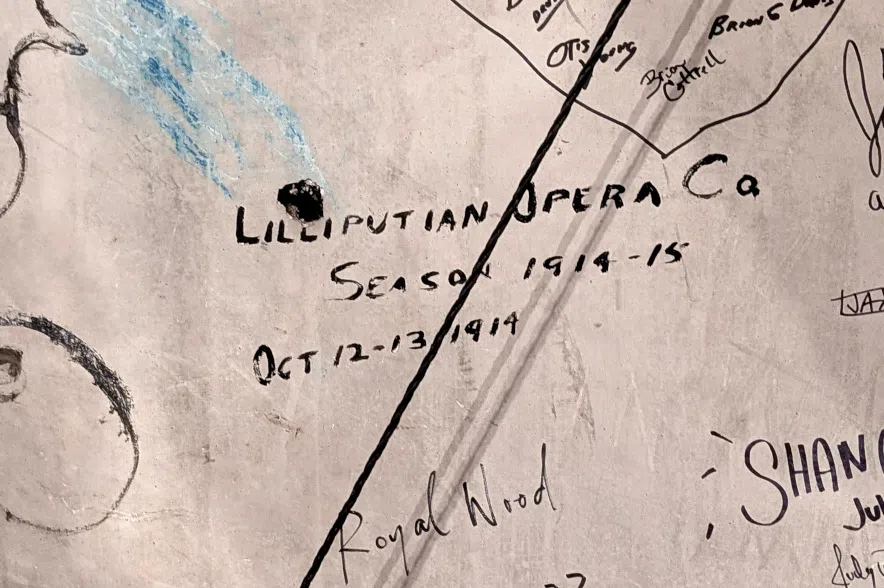 Otis Young
Brian Cottrell
Brian G
LILLIPUTIAN OPERA CO
SEASON 1914-15
OCT 12-13 1914
Royal Wood
SHAN